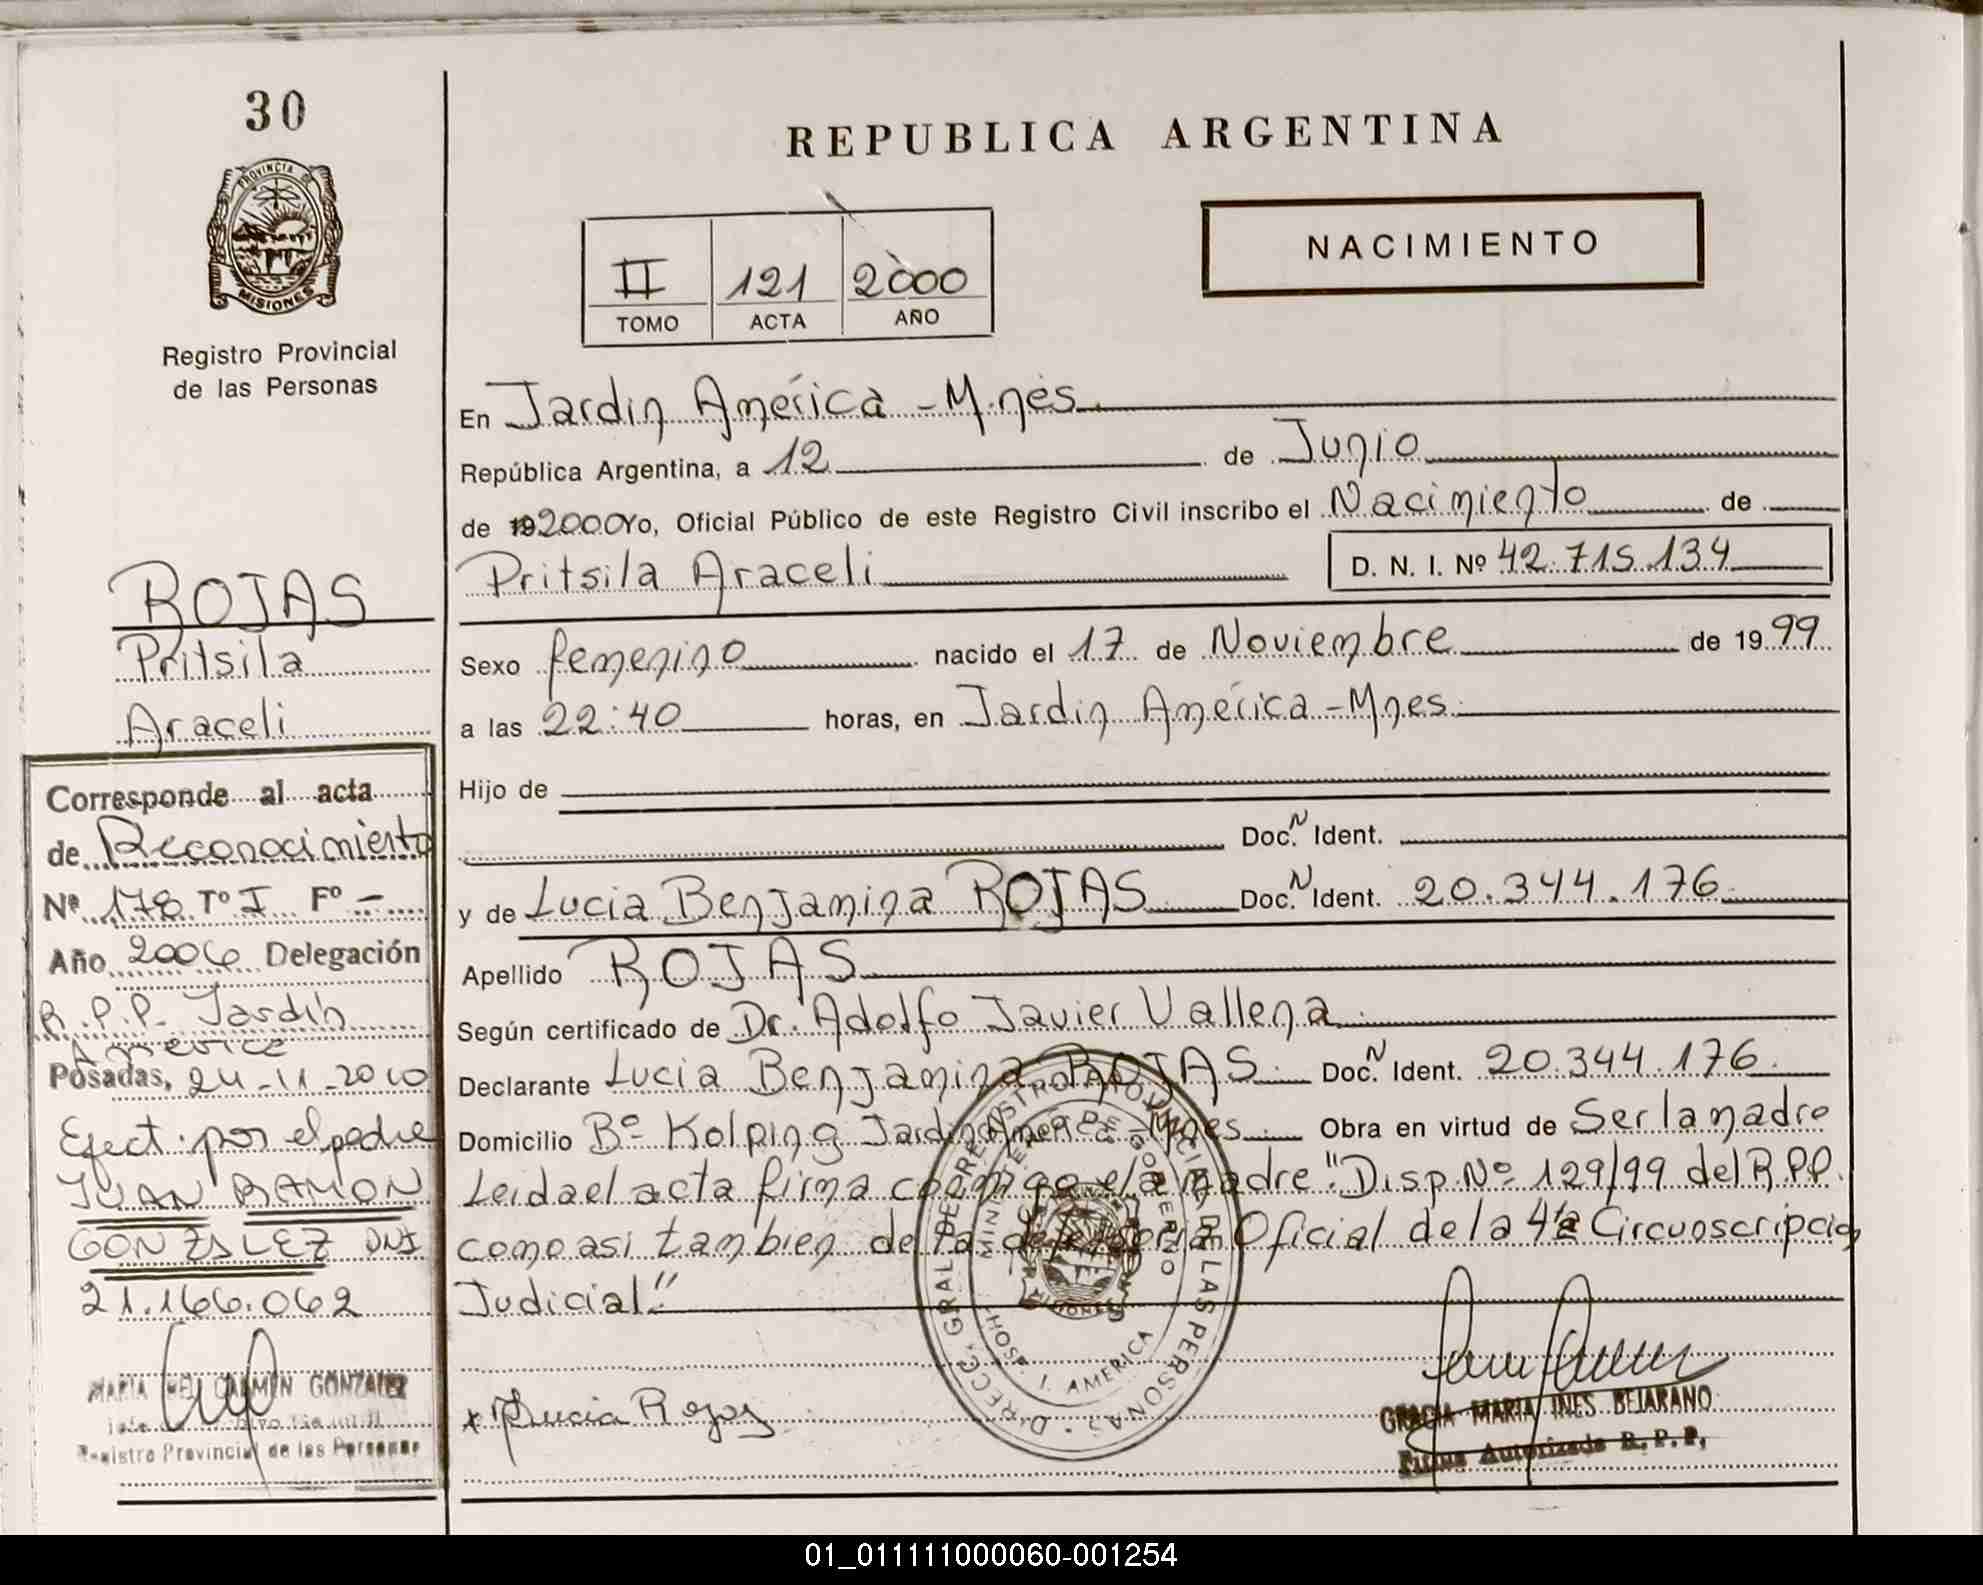 30
PROVINCIA DE
MISIONES
Registro Provincial
de las Personas
ROJAS
Pritsila
Araceli
Corresponde al acta
de Reconocimiento
Nº 178 Tº I Fº -
Año 2006 Delegación
R.P.P. Jardín
América
Posadas, 24-11-2010
Efect. por el padre
JUAN RAMON
GONZALEZ DNI
21.166.062
MARIA DEL CARMEN GONZALEZ
Registro Provincial de las Personas
REPUBLICA ARGENTINA
NACIMIENTO
II 121 2000
TOMO ACTA AÑO
En Jardin América - Mnes.
República Argentina, a 12 de Junio
de 192000 Yo, Oficial Público de este Registro Civil inscribo el Nacimiento de
Pritsila Araceli D. N. I. Nº 42.715.134
Sexo femenino nacido el 17 de Noviembre de 1999
a las 22:40 horas, en Jardin América - Mnes.
Hijo de
Doc. N Ident.
y de Lucia Benjamina ROJAS Doc. N Ident. 20.344.176
Apellido ROJAS
Según certificado de Dr. Adolfo Javier Vallena
Declarante Lucia Benjamina ROJAS Doc. N Ident. 20.344.176
Domicilio Bº Kolping Jardin América Mnes. Obra en virtud de Ser la madre
Leida el acta firma conmigo la madre "Disp. Nº 129/99 del R.P.P.
como asi tambien de la defensoria Oficial de la 4ta Circunscripcion
Judicial"
DIRECC. GRAL. DE REGISTRO PROVINCIAL DE LAS PERSONAS
MINISTERIO DE GOBIERNO
MISIONES
HOSP. J. AMERICA
x Lucia Rojas
GRACIA MARIA INES BEJARANO
Firma Autorizada R.P.P.
01_011111000060-001254